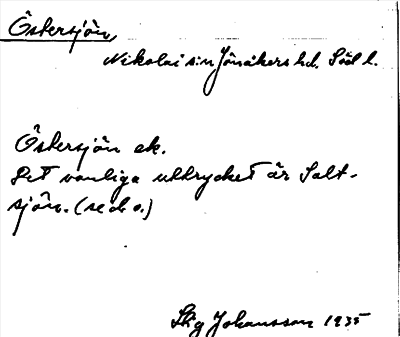 Östersjön
Nikolai sn Jönåkers hd. Södl.
Östersjön ek.
Det vanliga uttrycket är Salt-
sjön. (se d. o.)
Stig Johansson 1935